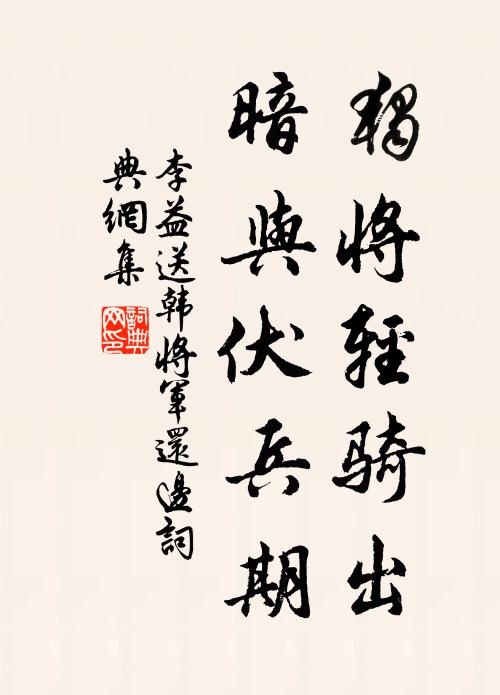 獨將輕騎出
暗與伏兵期
李益送韩將軍還邊詞
典網集
詞典网印